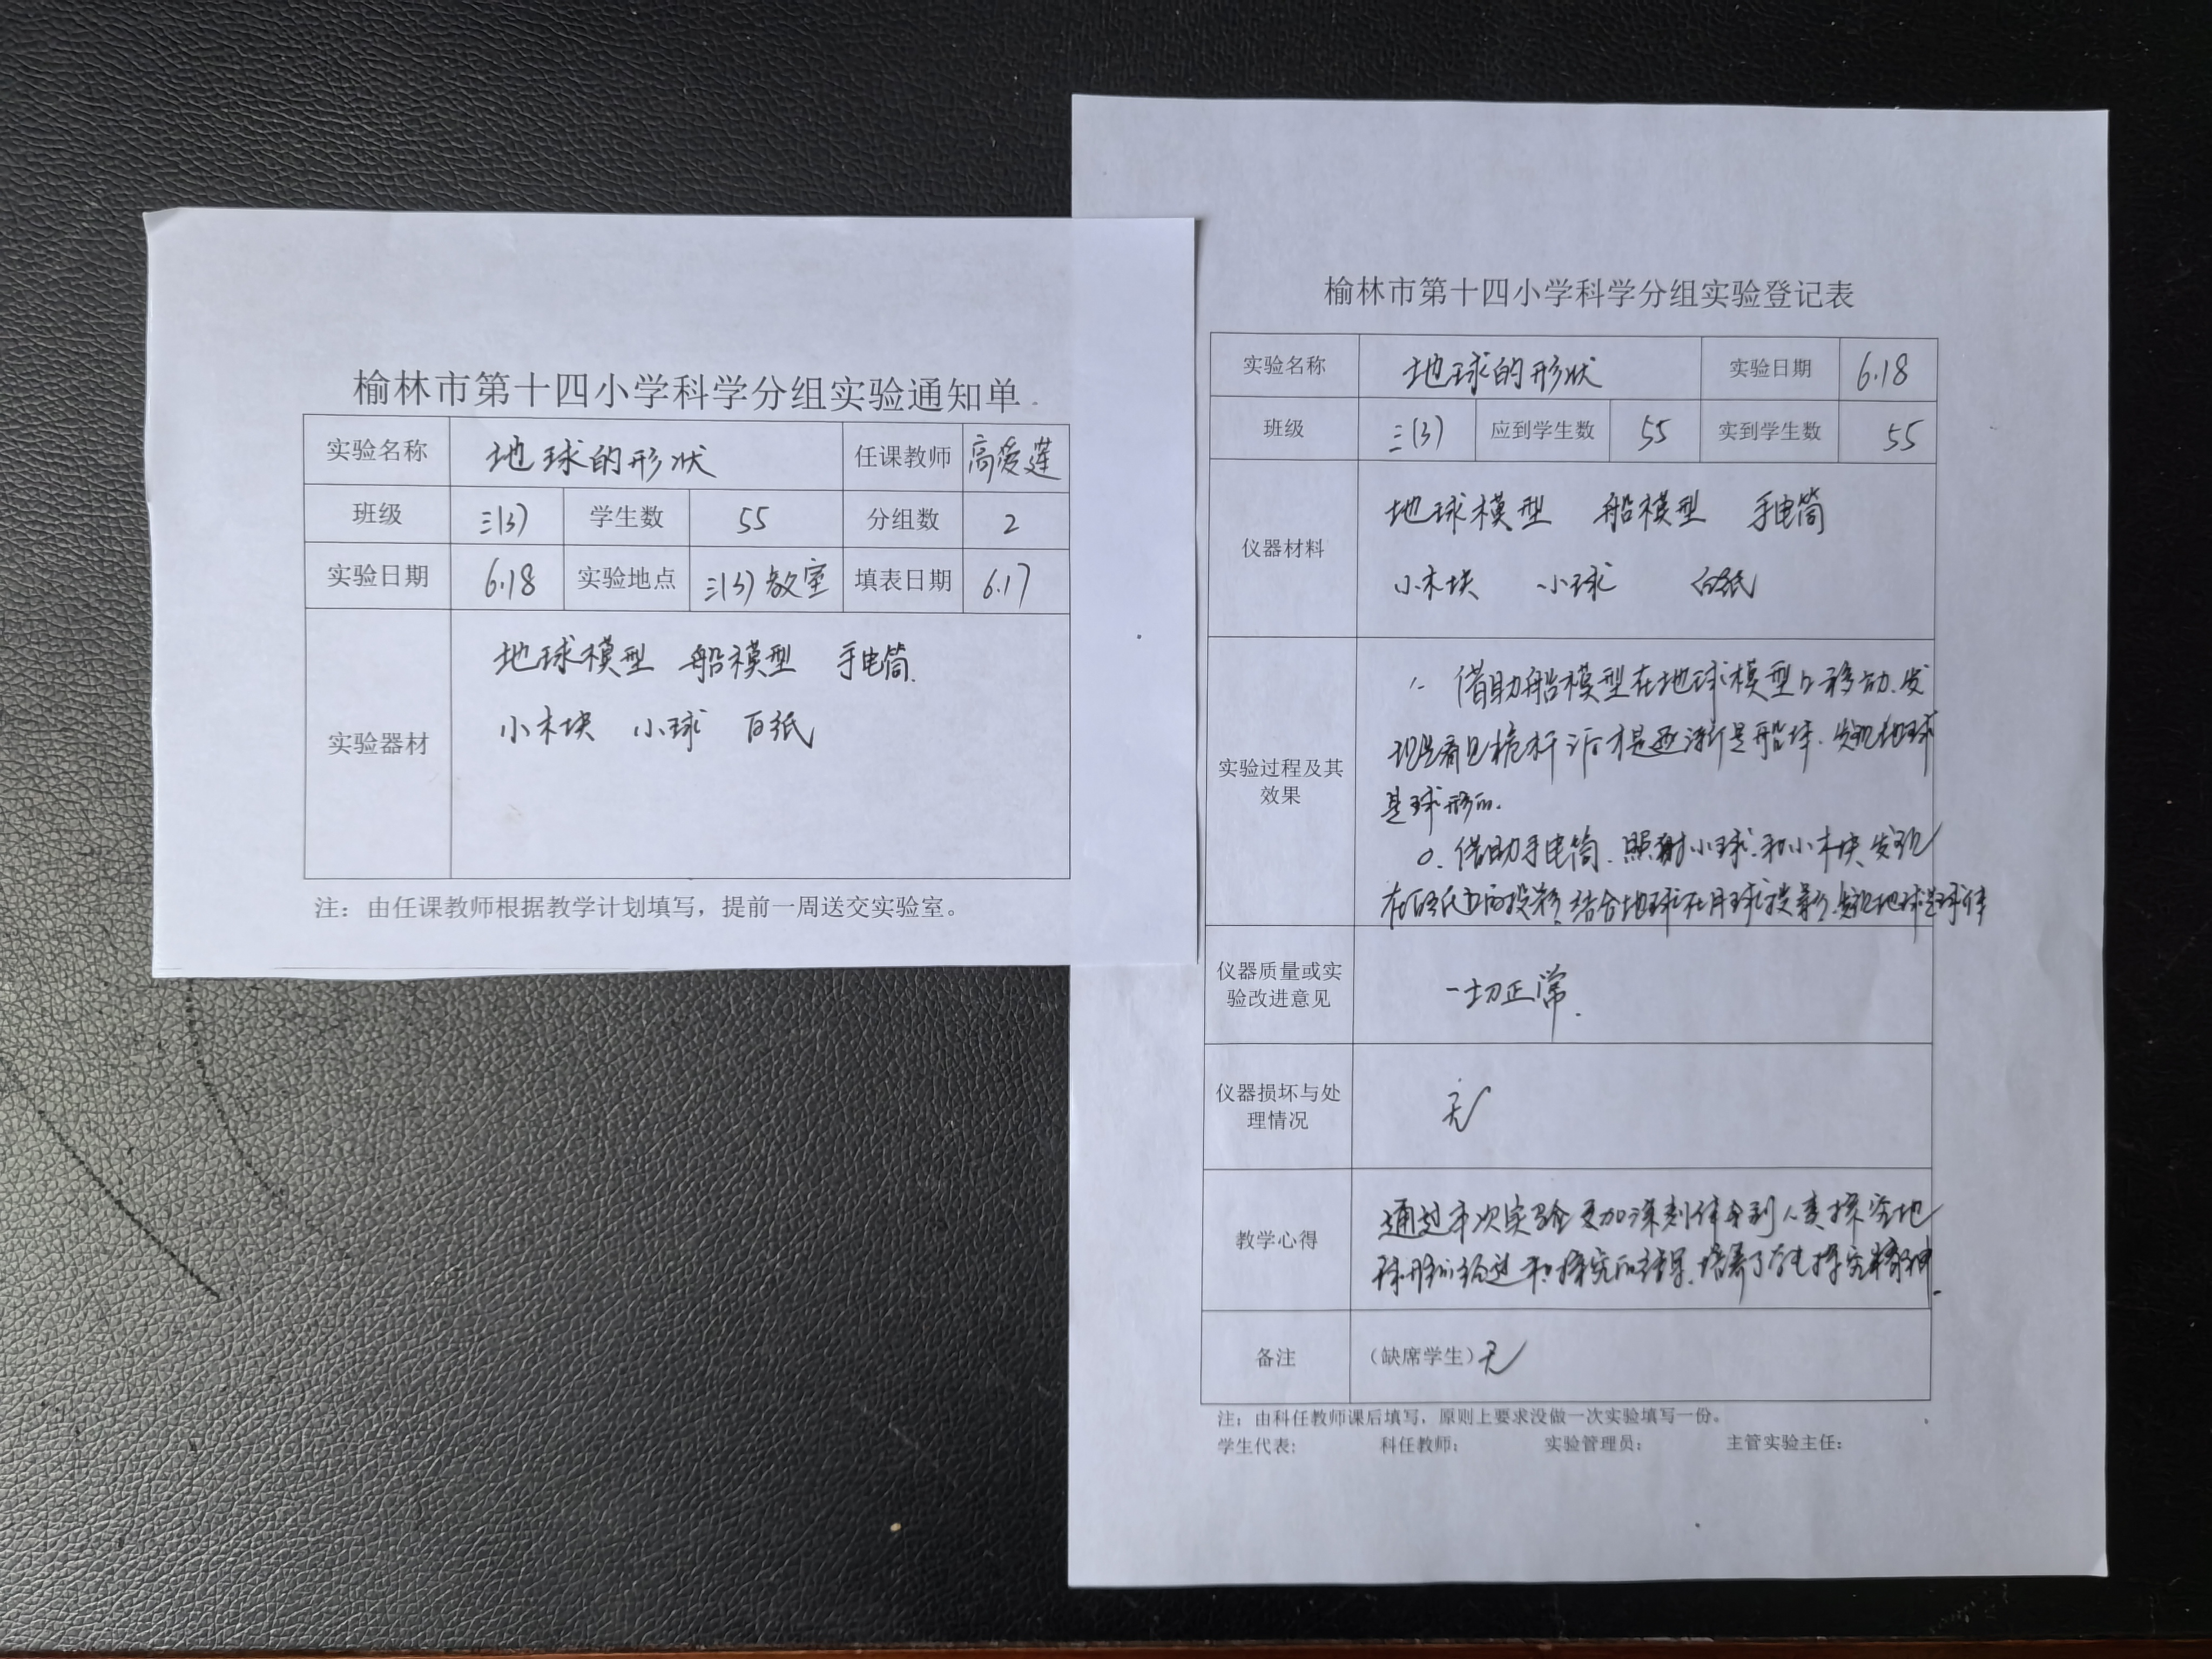 榆林市第十四小学科学分组实验通知单
实验名称 地球的形状 任课教师 高爱莲
班级 三(3) 学生数 55 分组数 2
实验日期 6.18 实验地点 三(3)教室 填表日期 6.17
地球模型 船模型 手电筒.
小木块 小球 白纸
实验器材
注：由任课教师根据教学计划填写，提前一周送交实验室。
榆林市第十四小学科学分组实验登记表
实验名称 地球的形状 实验日期 6.18
班级 三(3) 应到学生数 55 实到学生数 55
地球模型 船模型 手电筒
仪器材料
小木块 小球 白纸
借助船模型在地球模型上移动.发
现先看见桅杆 才是逐渐是船体.发现地球
实验过程及其
效果
是球形的.
借助手电筒.照射小球和小木块发现
在白纸上的投影.结合地球在月球投影.发现地球是球体
仪器质量或实
验改进意见
一切正常.
仪器损坏与处
理情况
无
教学心得
通过本次实验更加深刻体会到人类探究地
球形状的经过和探究的结果.培养了学生探究精神.
备注 （缺席学生）无
注：由科任教师课后填写，原则上要求没做一次实验填写一份。
学生代表： 科任教师： 实验管理员： 主管实验主任：